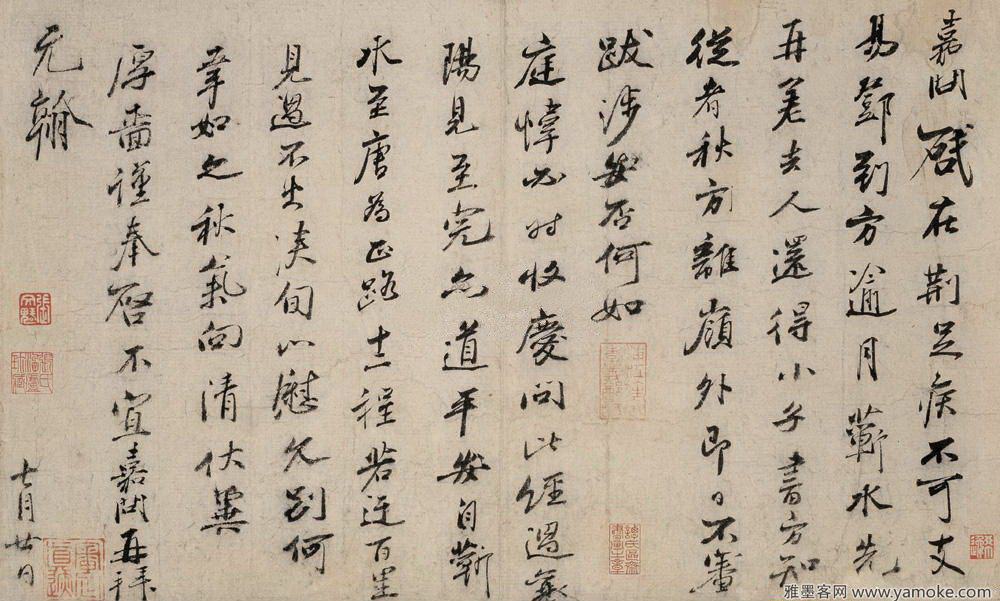 嘉問啟在荊足疾不可支
易鄧到方逾月蘄水先
再差去人還得小子書方知
從者秋方離嶺外即日不審
跋涉安否何如
庭幃必時收慶問比經過襄
陽見至完亦道平安自蘄
水至唐為正路十一程若迂百里
見過不出浹旬以慰久別何
幸如之秋氣向清伏冀
厚嗇謹奉啓不宣嘉問再拜
元翰
七月廿日
雅墨客网 www.yamoke.com